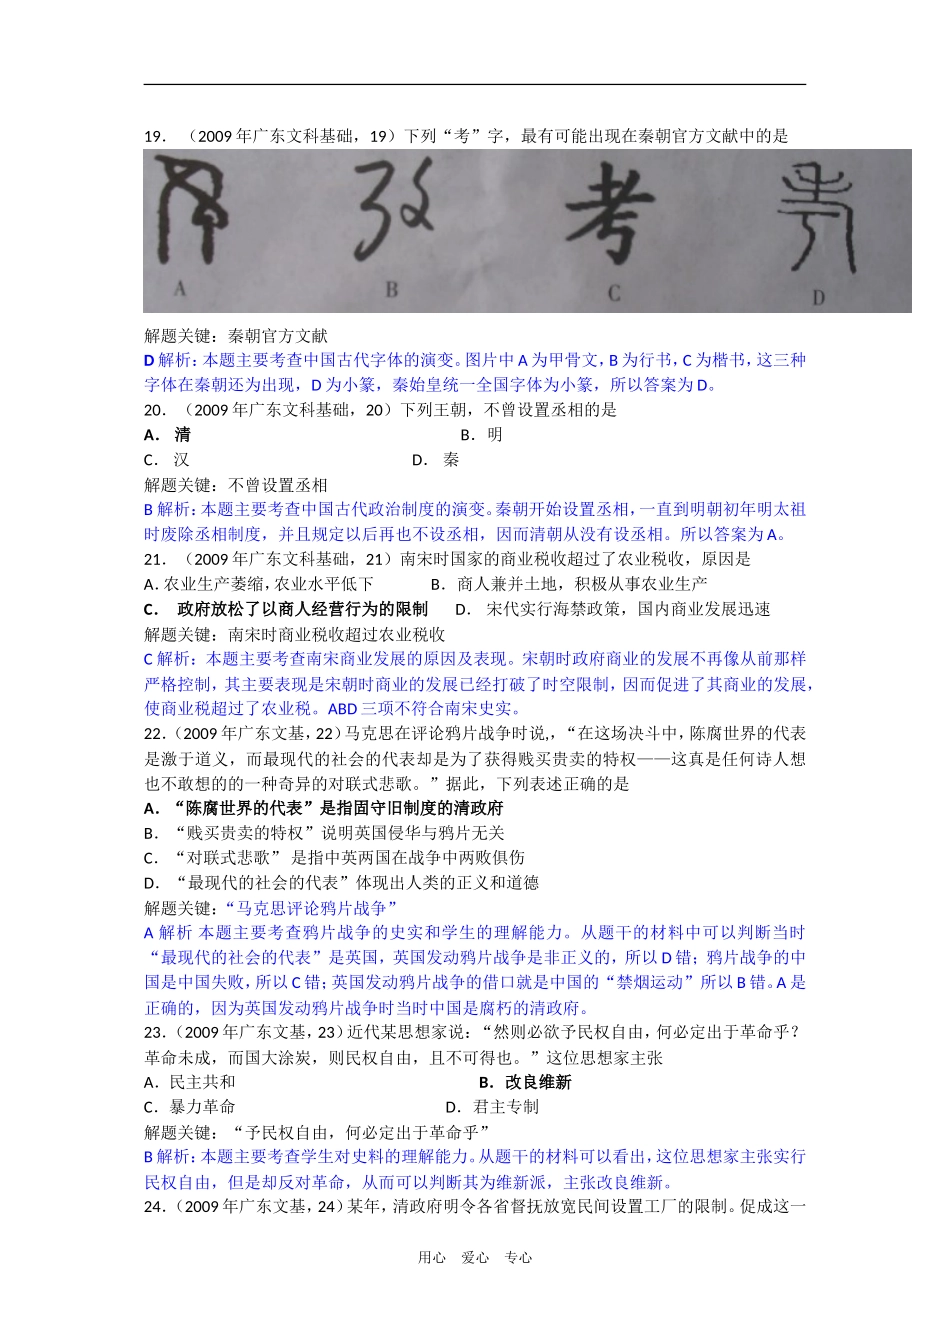 19． （2009年广东文科基础，19）下列“考”字，最有可能出现在秦朝官方文献中的是
A B C 考 D
解题关键：秦朝官方文献
D解析：本题主要考查中国古代字体的演变。图片中A为甲骨文，B为行书，C为楷书，这三种
字体在秦朝还为出现，D为小篆，秦始皇统一全国字体为小篆，所以答案为D。
20．（2009年广东文科基础，20）下列王朝，不曾设置丞相的是
A． 清 B．明
C． 汉 D． 秦
解题关键：不曾设置丞相
B解析：本题主要考查中国古代政治制度的演变。秦朝开始设置丞相，一直到明朝初年明太祖
时废除丞相制度，并且规定以后再也不设丞相，因而清朝从没有设丞相。所以答案为A。
21．（2009年广东文科基础，21）南宋时国家的商业税收超过了农业税收，原因是
A．农业生产萎缩，农业水平低下 B．商人兼并土地，积极从事农业生产
C． 政府放松了以商人经营行为的限制 D． 宋代实行海禁政策，国内商业发展迅速
解题关键：南宋时商业税收超过农业税收
C解析：本题主要考查南宋商业发展的原因及表现。宋朝时政府商业的发展不再像从前那样
严格控制，其主要表现是宋朝时商业的发展已经打破了时空限制，因而促进了其商业的发展，
使商业税超过了农业税。ABD三项不符合南宋史实。
22．（2009年广东文基，22）马克思在评论鸦片战争时说，，“在这场决斗中，陈腐世界的代表
是激于道义，而最现代的社会的代表却是为了获得贱买贵卖的特权——这真是任何诗人想
也不敢想的的一种奇异的对联式悲歌。”据此，下列表述正确的是
A．“陈腐世界的代表”是指固守旧制度的清政府
B．“贱买贵卖的特权”说明英国侵华与鸦片无关
C．“对联式悲歌” 是指中英两国在战争中两败俱伤
D．“最现代的社会的代表”体现出人类的正义和道德
解题关键：“马克思评论鸦片战争”
A 解析 本题主要考查鸦片战争的史实和学生的理解能力。从题干的材料中可以判断当时
“最现代的社会的代表”是英国，英国发动鸦片战争是非正义的，所以D错；鸦片战争的中
国是中国失败，所以C错；英国发动鸦片战争的借口就是中国的“禁烟运动”所以B错。A是
正确的，因为英国发动鸦片战争时当时中国是腐朽的清政府。
23．（2009年广东文基，23）近代某思想家说：“然则必欲予民权自由，何必定出于革命乎？
革命未成，而国大涂炭，则民权自由，且不可得也。”这位思想家主张
A．民主共和 B．改良维新
C．暴力革命 D．君主专制
解题关键：“予民权自由，何必定出于革命乎”
B解析：本题主要考查学生对史料的理解能力。从题干的材料可以看出，这位思想家主张实行
民权自由，但是却反对革命，从而可以判断其为维新派，主张改良维新。
24．（2009年广东文基，24）某年，清政府明令各省督抚放宽民间设置工厂的限制。促成这一
用心 爱心 专心